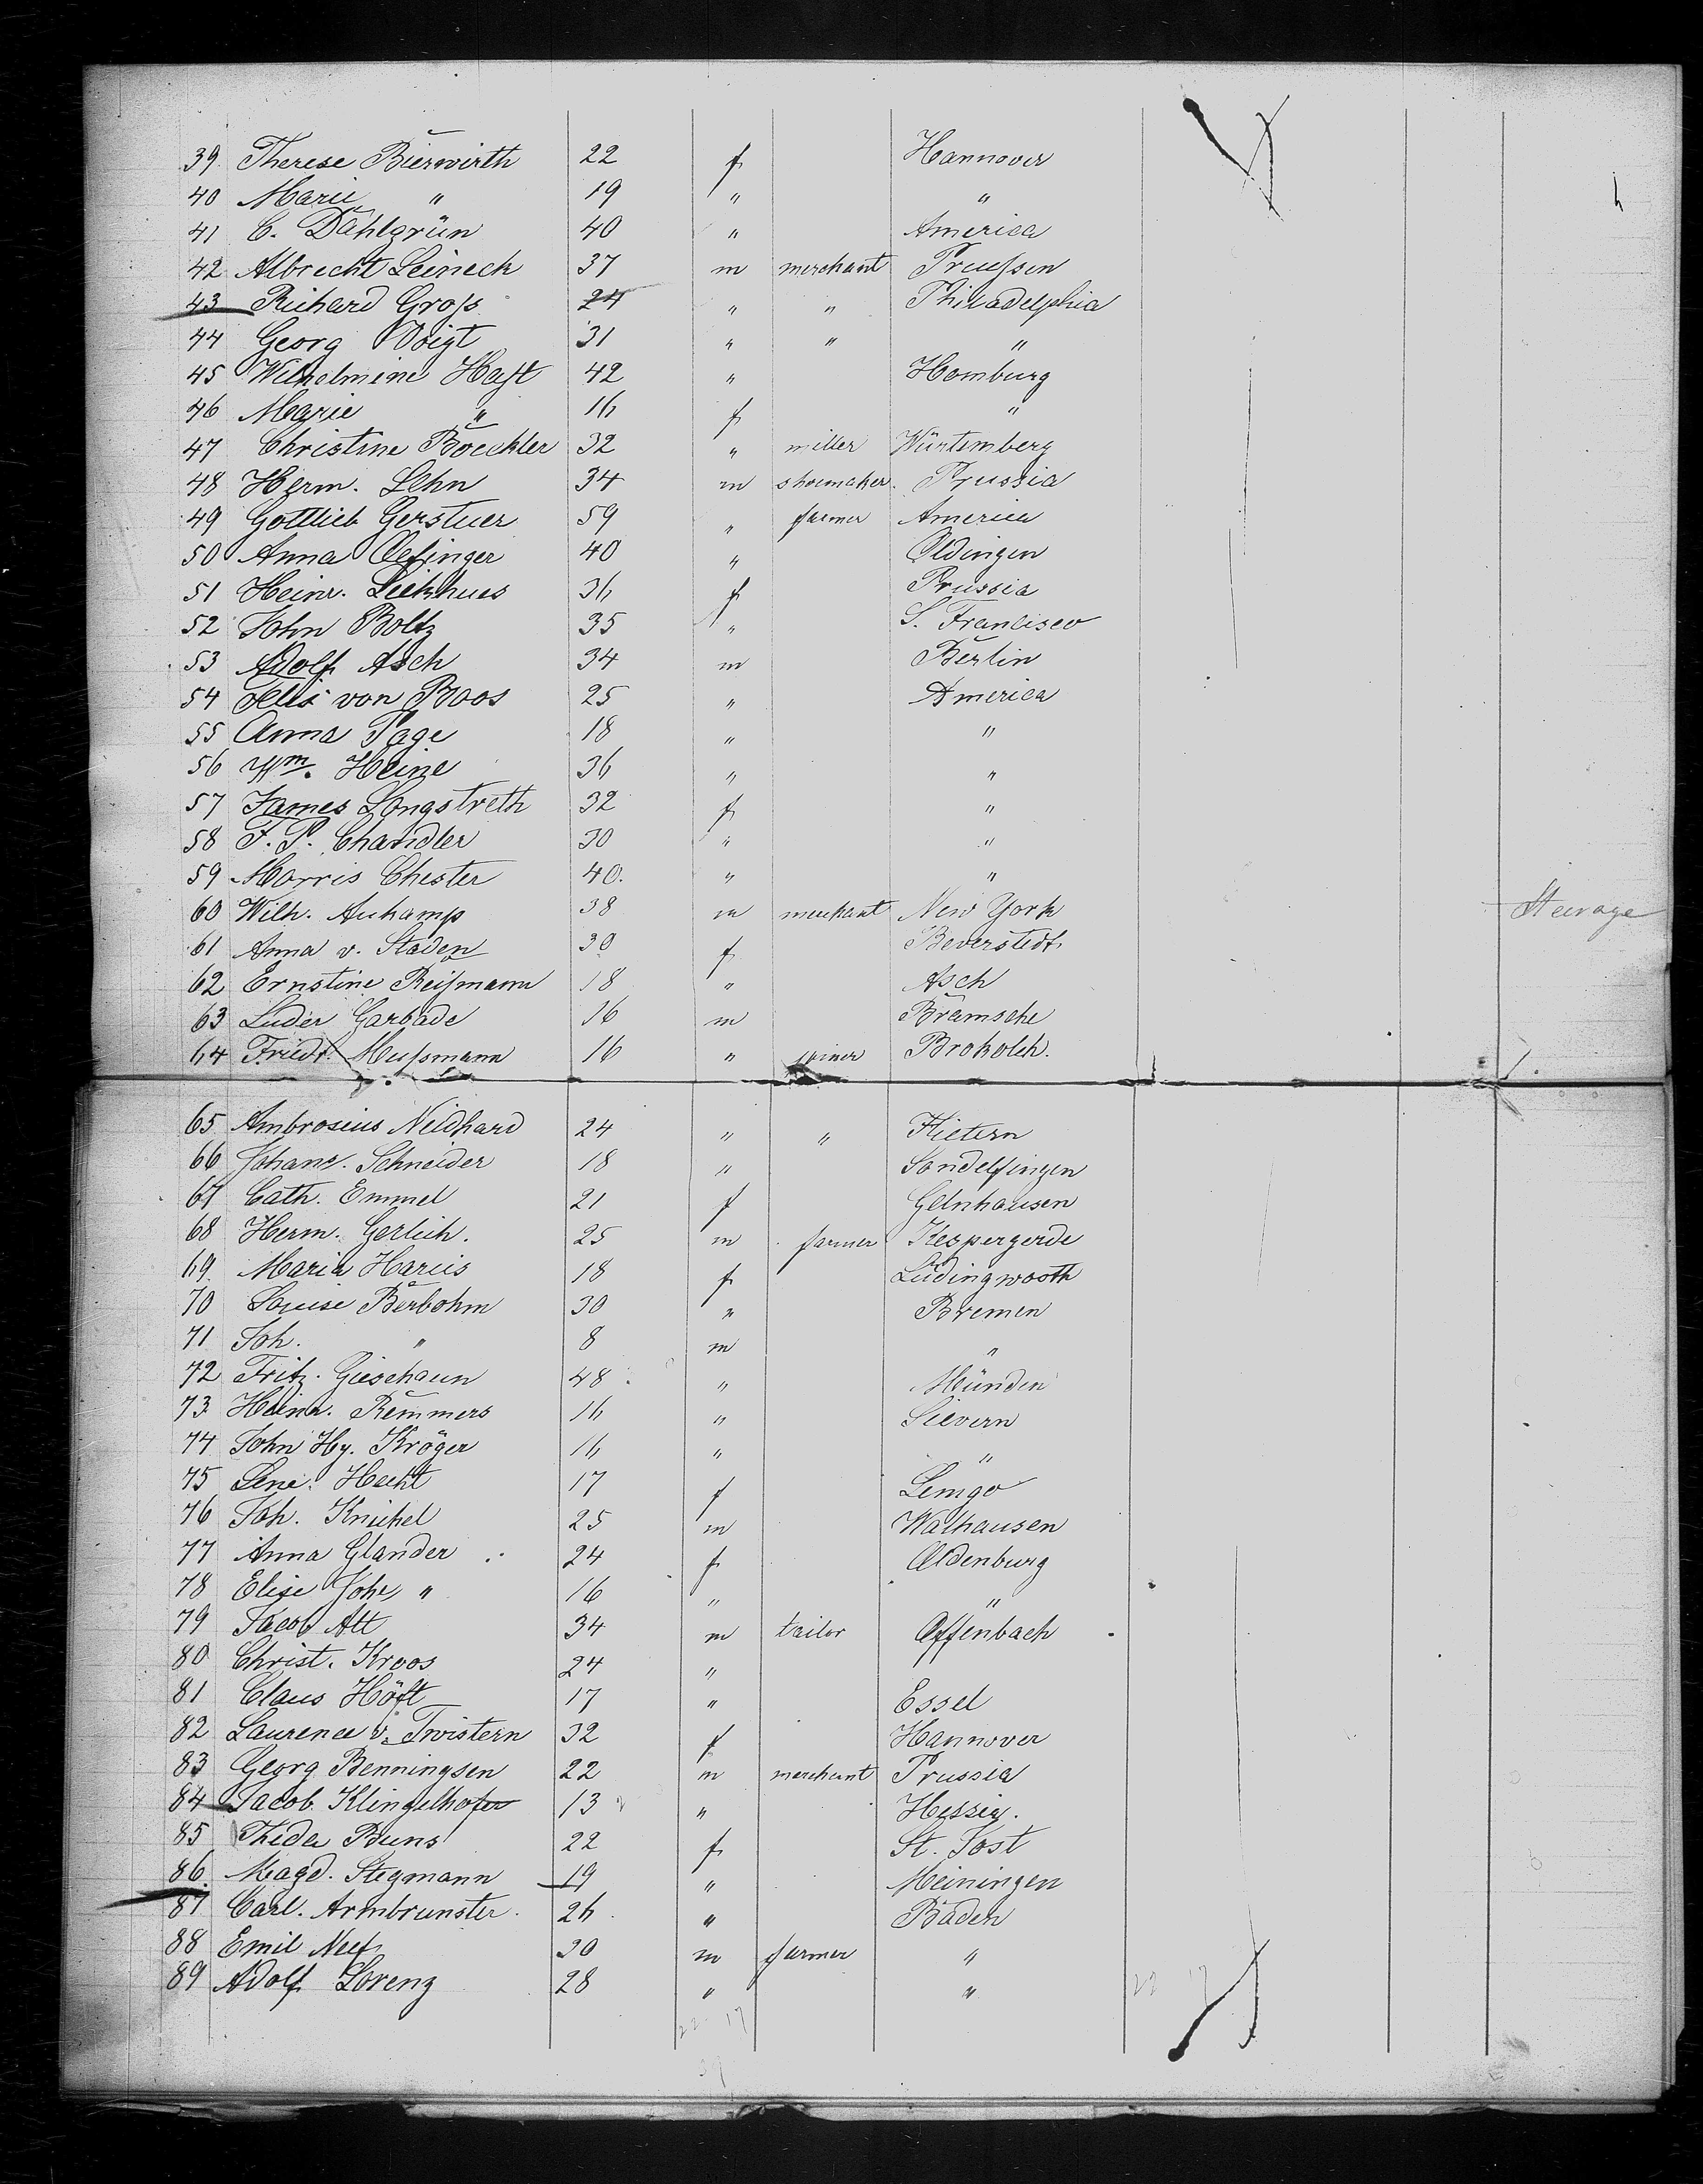 39 Therese Bierwirth 22 f Hannover
40 Marie " 19 " "
41 C. Dahlgrün 40 " America
42 Albrecht Leineck 37 m merchant Preußen
43 Richard Groß 24 " " Philadelphia
44 Georg Voigt 31 " " "
45 Wilhelmine Haft 42 " Homburg
46 Marie " 16 f "
47 Christine Boeckler 32 " miller Würtemberg
48 Herm. Lehn 34 m shoemaker Prussia
49 Gottlieb Gerstuer 59 " farmer America
50 Anna Oefinger 40 " Oldingen
51 Heinr. Lickhues 36 f Prussia
52 John Boltz 35 " S. Francisco
53 Adolf Asch 34 m Berlin
54 von Boos 25 " America
55 Anna Page 18 " "
56 Wm. Heine 36 " "
57 James Longstreth 32 f "
58 F. P. Chandler 30 " "
59 Morris Chester 40. " "
60 Wilh. Auhamp 38 m merchant New York Steerage
61 Anna v. Staden 30 f Beverstedt
62 Ernstine Reißmann 18 " Asch
63 Luder Garbade 16 m Bramsche
64 Friedr. Mußmann 16 " joiner Brokolch.
65 Ambrosius Neidhard 24 " " Hietern
66 Johann. Schneider 18 " Sondelfingen
67 Cath. Emmel 21 f Gelnhausen
68 Herm. Gerlich. 25 m farmer Kespergerde
69 Maria Harus 18 f Lüdingworth
70 Louise Bärbohm 30 " Bremen
71 Joh. " 8 m "
72 Fritz. Gieschaun 48 " Münden
73 Heinr. Remmers 16 " Sievern
74 John Hy. Kröger 16 " "
75 Lene. Hecht 17 f Lemgo
76 Joh. Knichel 25 m Walhausen
77 Anna Glander 24 f Oldenburg
78 Elise Joh. " 16 " "
79 Jacob Alt 34 m tailor Offenbach
80 Christ. Kroos 24 "
81 Claus Höft 17 " Essel
82 Laurence v. Twistern 32 f Hannover
83 Georg Benningsen 22 m merchant Prussia
84 Jacob Klingelhofer 13 " Hessia.
85 Theda Buns 22 f St. Jost
86. Magd. Stegmann 19 " Meiningen
87 Carl. Armbrunster. 26 " Baden
88 Emil Neef 30 m farmer "
89 Adolf Lorenz 28 " "
22 17
22 17